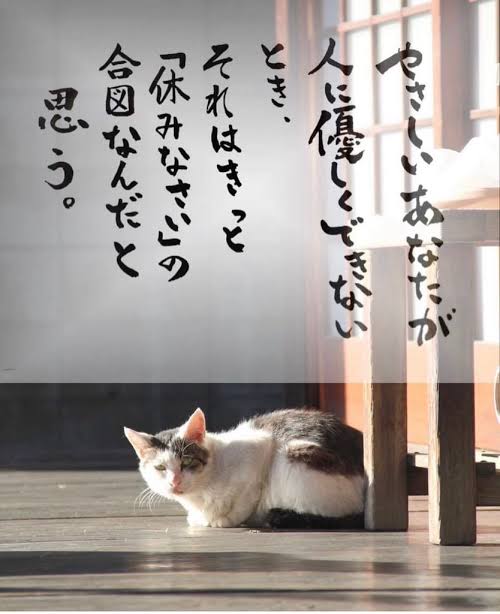 やさしいあなたが
人に優しくできない
とき、
それはきっと
「休みなさい」の
合図なんだと
思う。